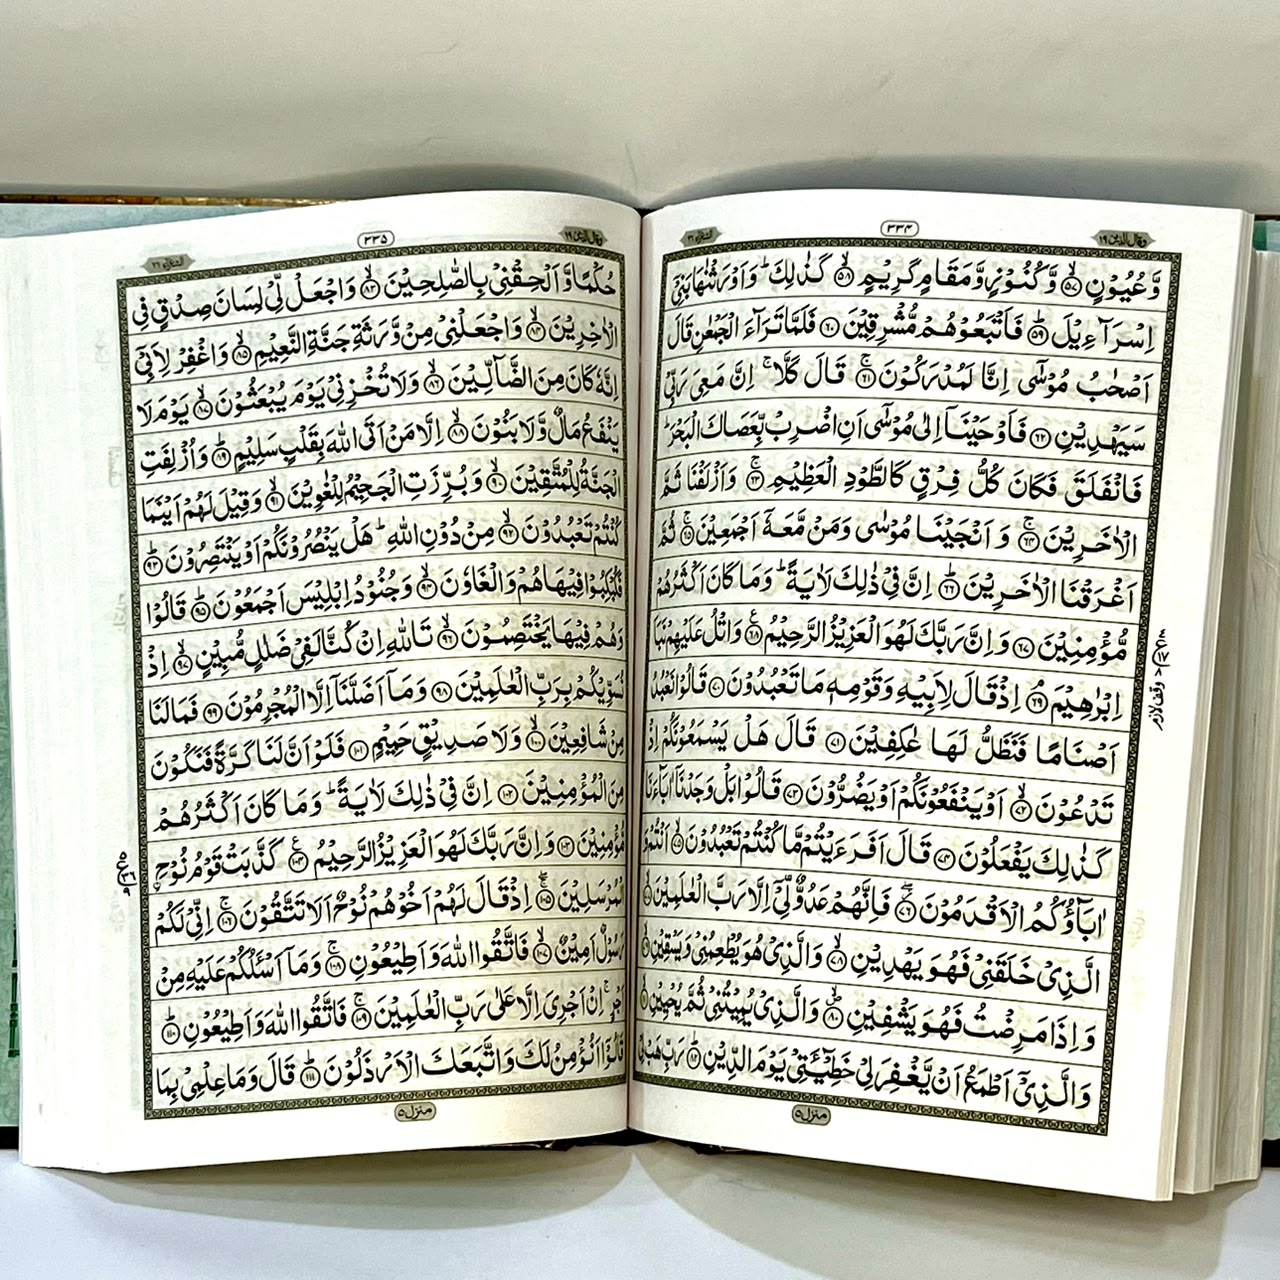 وقال الذین ۱۹
۳۳۴
الشعرآء ۲۶
وَّعُيُوۡنٍ ۙ‏﴿۵۷﴾ وَّكُنُوۡزٍ وَّمَقَامٍ كَرِيۡمٍ ۙ‏﴿۵۸﴾ كَذٰلِكَؕ وَاَوۡرَثۡنٰهَا بَنِىۡۤ
اِسۡرَآءِيۡلَ ؕ‏﴿۵۹﴾ فَاَتۡبَعُوۡهُمۡ مُّشۡرِقِيۡنَ‏﴿۶۰﴾ فَلَمَّا تَرَآءَ الۡجَمۡعٰنِ قَالَ
اَصۡحٰبُ مُوۡسٰٓى اِنَّا لَمُدۡرَكُوۡنَ​ۚ‏﴿۶۱﴾ قَالَ كَلَّا​ ۚ اِنَّ مَعِىَ رَبِّىۡ
سَيَهۡدِيۡنِ‏﴿۶۲﴾ فَاَوۡحَيۡنَاۤ اِلٰى مُوۡسٰٓى اَنِ اضۡرِبْ بِّعَصَاكَ الۡبَحۡرَ​ؕ
فَانْفَلَقَ فَكَانَ كُلُّ فِرۡقٍ كَالطَّوۡدِ الۡعَظِيۡمِ​ۚ‏﴿۶۳﴾ وَاَزۡلَـفۡنَا ثَمَّ
الۡاٰخَرِيۡنَ​ۚ‏﴿۶۴﴾ وَاَنۡجَيۡنَا مُوۡسٰى وَمَنۡ مَّعَهٗۤ اَجۡمَعِيۡنَ​ۚ‏﴿۶۵﴾ ثُمَّ
اَغۡرَقۡنَا الۡاٰخَرِيۡنَ​ؕ‏﴿۶۶﴾ اِنَّ فِىۡ ذٰلِكَ لَاٰيَةً  ​ؕ وَمَا كَانَ اَكۡثَرُهُمۡ
مُّؤۡمِنِيۡنَ‏﴿۶۷﴾ وَاِنَّ رَبَّكَ لَهُوَ الۡعَزِيۡزُ الرَّحِيۡمُ‏﴿۶۸﴾ وَاتۡلُ عَلَيۡهِمۡ نَبَاَ
اِبۡرٰهِيۡمَ​ۘ‏﴿۶۹﴾ اِذۡ قَالَ لِاَبِيۡهِ وَقَوۡمِهٖ مَا تَعۡبُدُوۡنَ‏﴿۷۰﴾ قَالُوۡا نَـعۡبُدُ
اَصۡنَامًا فَنَظَلُّ لَهَا عٰكِفِيۡنَ‏﴿۷۱﴾ قَالَ هَلۡ يَسۡمَعُوۡنَكُمۡ اِذۡ
تَدۡعُوۡنَۙ‏﴿۷۲﴾ اَوۡ يَنۡفَعُوۡنَكُمۡ اَوۡ يَضُرُّوۡنَ‏﴿۷۳﴾ قَالُوۡا بَلۡ وَجَدۡنَاۤ اٰبَآءَنَا
كَذٰلِكَ يَفۡعَلُوۡنَ‏﴿۷۴﴾ قَالَ اَفَرَءَيۡتُمۡ مَّا كُنۡتُمۡ تَعۡبُدُوۡنَۙ‏﴿۷۵﴾ اَنۡتُمۡ وَ
اٰبَآؤُكُمُ الۡاَقۡدَمُوۡنَ  ۖ‏﴿۷۶﴾ فَاِنَّهُمۡ عَدُوٌّ لِّىۡۤ اِلَّا رَبَّ الۡعٰلَمِيۡنَۙ‏﴿۷۷﴾
الَّذِىۡ خَلَقَنِىۡ فَهُوَ يَهۡدِيۡنِۙ‏﴿۷۸﴾ وَالَّذِىۡ هُوَ يُطۡعِمُنِىۡ وَيَسۡقِيۡنِۙ‏﴿۷۹﴾
وَاِذَا مَرِضۡتُ فَهُوَ يَشۡفِيۡنِ ۙ‏﴿۸۰﴾ وَالَّذِىۡ يُمِيۡتُنِىۡ ثُمَّ يُحۡيِيۡنِۙ‏﴿۸۱﴾
وَالَّذِىۡۤ اَطۡمَعُ اَنۡ يَّغۡفِرَ لِىۡ خَطِٓيْئَـتِىۡ يَوۡمَ الدِّيۡنِ ؕ‏﴿۸۲﴾ رَبِّ هَبۡ لِىۡ
وقف لازم
منزل ۵
وقال الذین ۱۹
۳۳۵
الشعرآء ۲۶
حُكۡمًا وَّاَلۡحِقۡنِىۡ بِالصّٰلِحِيۡنَۙ‏﴿۸۳﴾ وَاجۡعَلْ لِّىۡ لِسَانَ صِدۡقٍ فِى
الۡاٰخِرِيۡنَۙ‏﴿۸۴﴾ وَاجۡعَلۡنِىۡ مِنۡ وَّرَثَةِ جَنَّةِ النَّعِيۡمِۙ‏﴿۸۵﴾ وَاغۡفِرۡ لِاَبِىۡۤ
اِنَّهٗ كَانَ مِنَ الضَّآلِّيۡنَۙ‏﴿۸۶﴾ وَلَا تُخۡزِنِىۡ يَوۡمَ يُبۡعَثُوۡنَۙ‏﴿۸۷﴾ يَوۡمَ لَا
يَنۡفَعُ مَالٌ وَّلَا بَنُوۡنَۙ‏﴿۸۸﴾ اِلَّا مَنۡ اَتَى اللّٰهَ بِقَلۡبٍ سَلِيۡمٍؕ‏﴿۸۹﴾ وَاُزۡلِفَتِ
الۡجَـنَّةُ لِلۡمُتَّقِيۡنَۙ‏﴿۹۰﴾ وَبُرِّزَتِ الۡجَحِيۡمُ لِلۡغٰوِيۡنَۙ‏﴿۹۱﴾ وَقِيۡلَ لَهُمۡ اَيۡنَمَا
كُنۡتُمۡ تَعۡبُدُوۡنَۙ‏﴿۹۲﴾ مِنۡ دُوۡنِ اللّٰهِؕ هَلۡ يَنۡصُرُوۡنَكُمۡ اَوۡ يَنۡتَصِرُوۡنَؕ‏﴿۹۳﴾
فَكُبۡكِبُوۡا فِيۡهَا هُمۡ وَالۡغَاوٗنَۙ‏﴿۹۴﴾ وَجُنُوۡدُ اِبۡلِيۡسَ اَجۡمَعُوۡنَؕ‏﴿۹۵﴾ قَالُوۡا
وَهُمۡ فِيۡهَا يَخۡتَصِمُوۡنَۙ‏﴿۹۶﴾ تَاللّٰهِ اِنۡ كُنَّا لَفِىۡ ضَلٰلٍ مُّبِيۡنٍۙ‏﴿۹۷﴾ اِذۡ
نُسَوِّيۡكُمۡ بِرَبِّ الۡعٰلَمِيۡنَ‏﴿۹۸﴾ وَمَاۤ اَضَلَّنَاۤ اِلَّا الۡمُجۡرِمُوۡنَ‏﴿۹۹﴾ فَمَا لَـنَا
مِنۡ شَافِعِيۡنَۙ‏﴿۱۰۰﴾ وَلَا صَدِيۡقٍ حَمِيۡمٍ‏﴿۱۰۱﴾ فَلَوۡ اَنَّ لَـنَا كَرَّةً فَنَكُوۡنَ
مِنَ الۡمُؤۡمِنِيۡنَ‏﴿۱۰۲﴾ اِنَّ فِىۡ ذٰلِكَ لَاٰيَةً  ؕ وَمَا كَانَ اَكۡثَرُهُمۡ
مُّؤۡمِنِيۡنَ‏﴿۱۰۳﴾ وَاِنَّ رَبَّكَ لَهُوَ الۡعَزِيۡزُ الرَّحِيۡمُ‏﴿۱۰۴﴾ كَذَّبَتۡ قَوۡمُ نُوۡحِ
اۨلۡمُرۡسَلِيۡنَ ۖ​ۚ‏﴿۱۰۵﴾ اِذۡ قَالَ لَهُمۡ اَخُوۡهُمۡ نُوۡحٌ اَلَا تَتَّقُوۡنَ​ۚ‏﴿۱۰۶﴾ اِنِّىۡ لَـكُمۡ
رَسُوۡلٌ اَمِيۡنٌۙ‏﴿۱۰۷﴾ فَاتَّقُوا اللّٰهَ وَاَطِيۡعُوۡنِ​ۚ‏﴿۱۰۸﴾ وَمَاۤ اَسۡئَلُكُمۡ عَلَيۡهِ مِنۡ
اَجۡرٍ​ۚ اِنۡ اَجۡرِىَ اِلَّا عَلٰى رَبِّ الۡعٰلَمِيۡنَ​ۚ‏﴿۱۰۹﴾ فَاتَّقُوا اللّٰهَ وَاَطِيۡعُوۡنِؕ‏﴿۱۱۰﴾
قَالُوۡۤا اَنُؤۡمِنُ لَكَ وَاتَّبَعَكَ الۡاَرۡذَلُوۡنَؕ‏﴿۱۱۱﴾ قَالَ وَمَا عِلۡمِىۡ بِمَا
منزل ۵